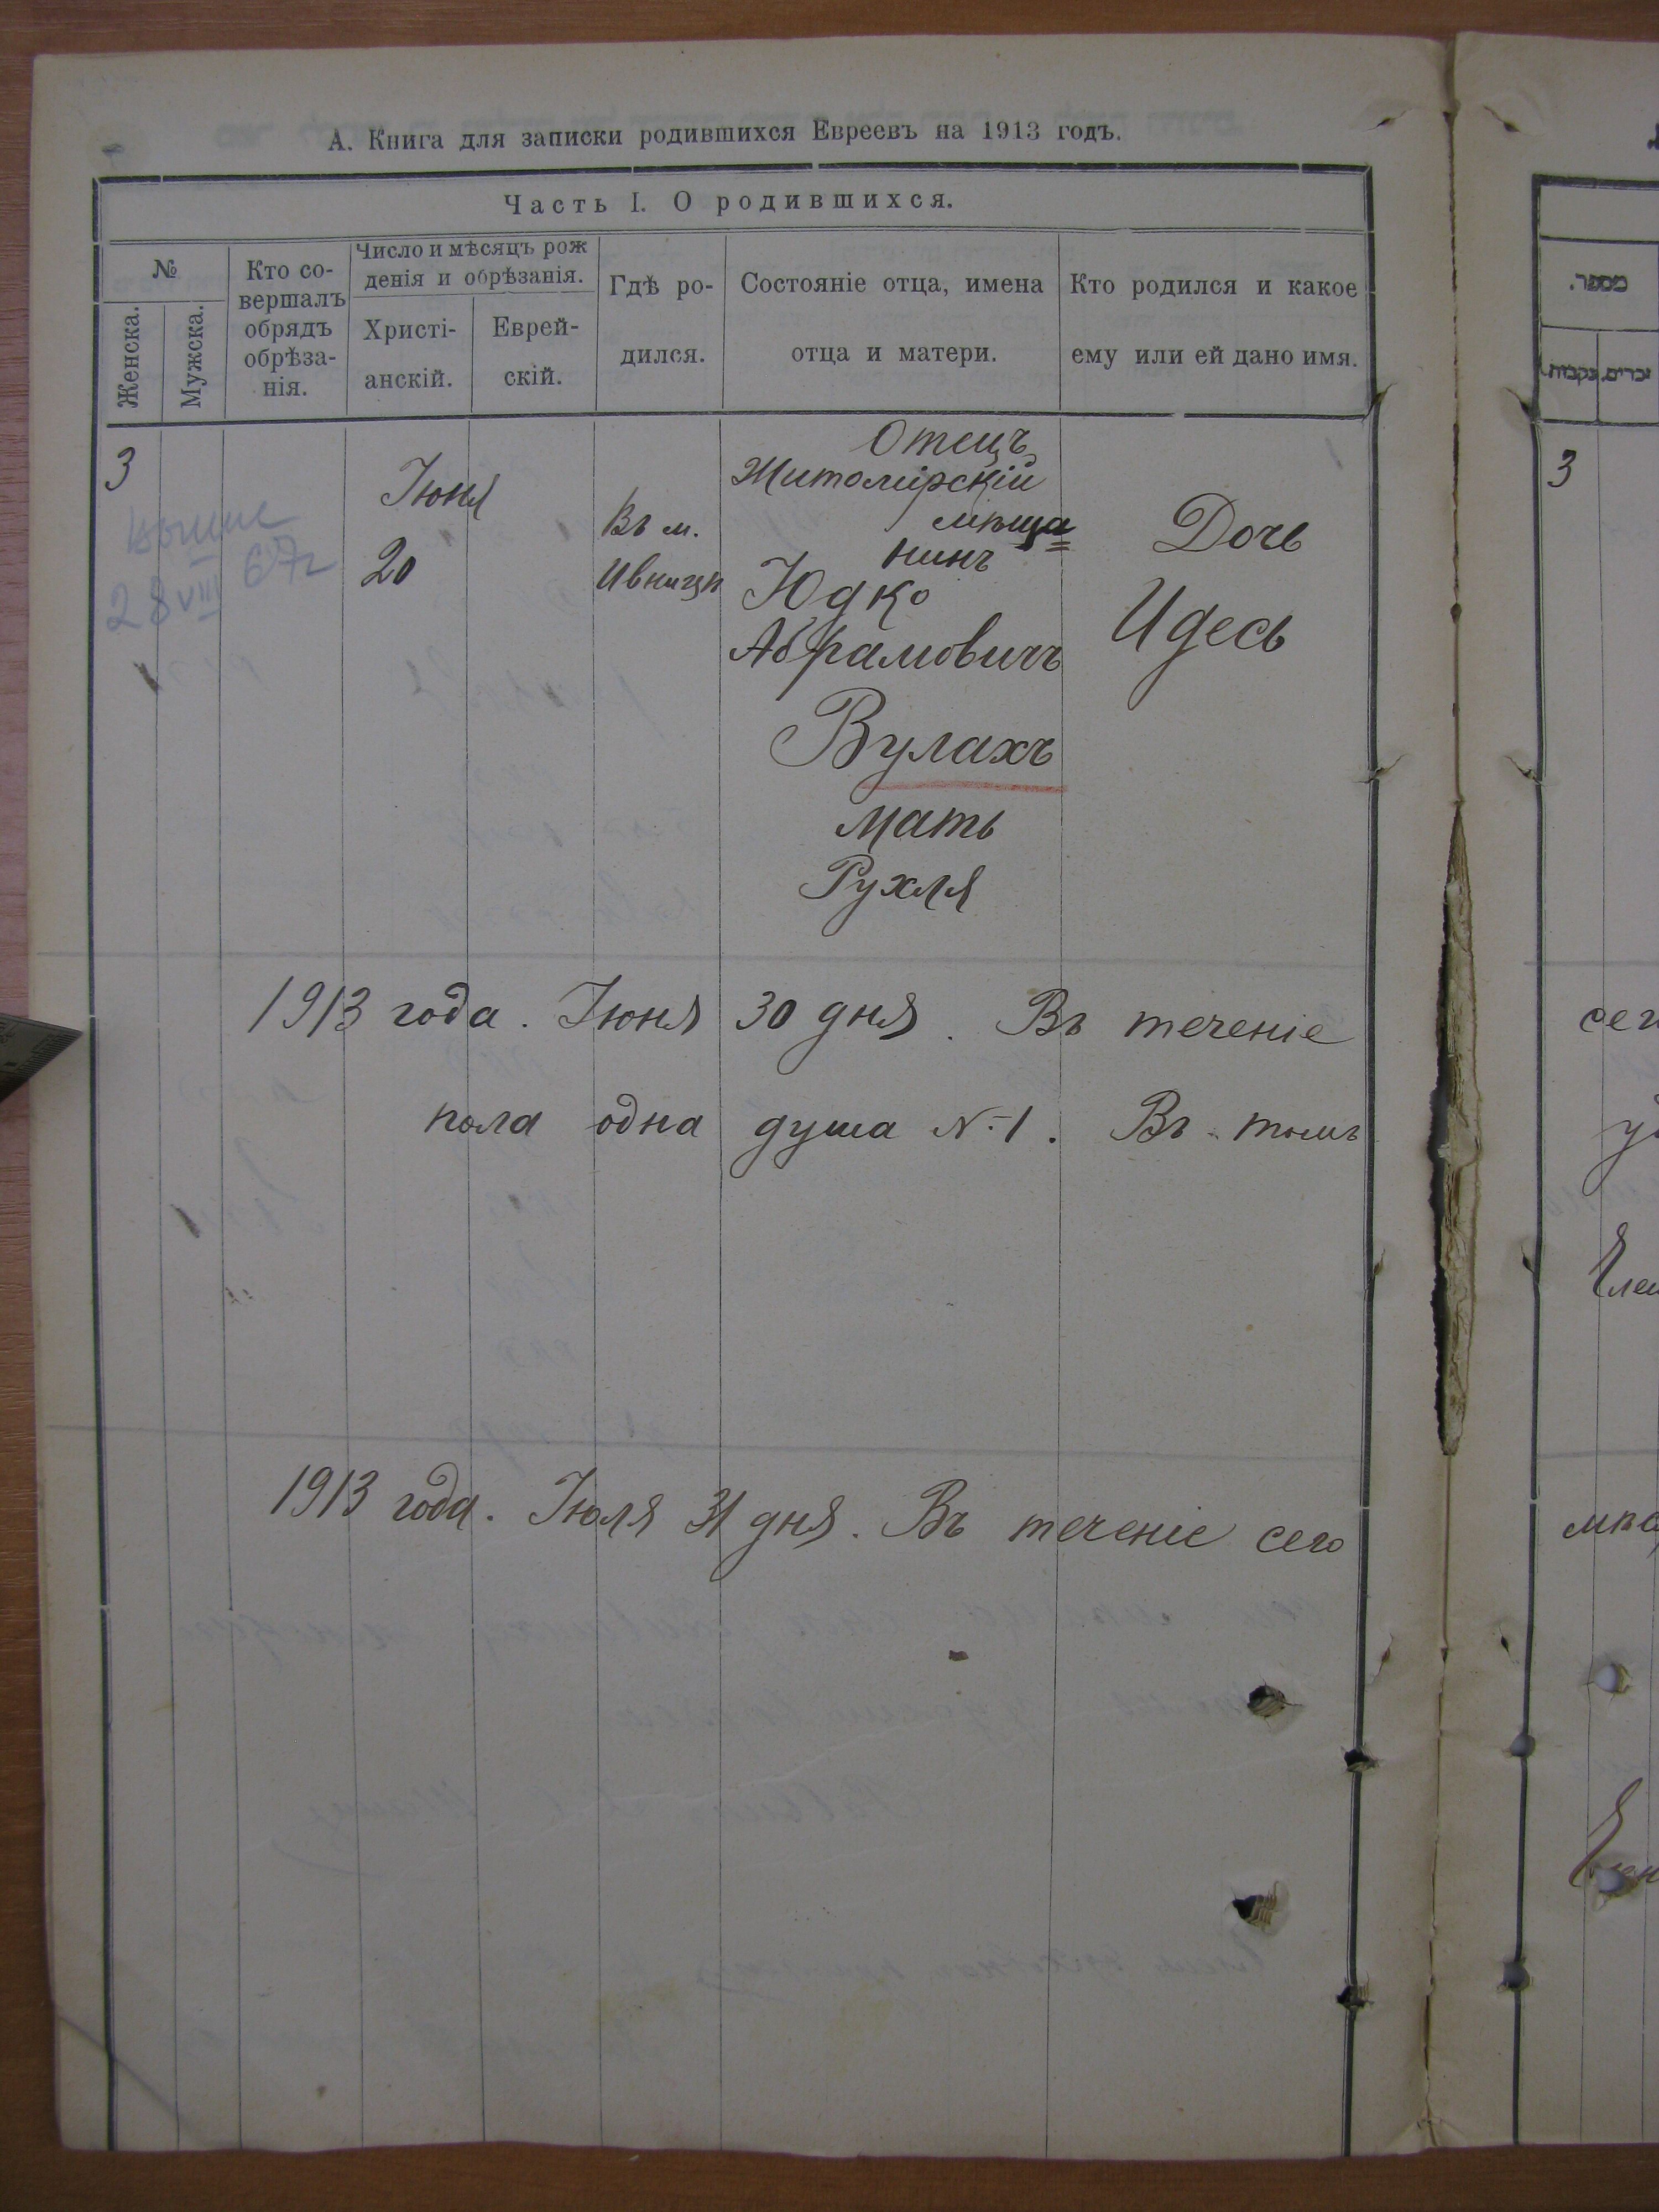 А. Книга для записки родившихся Евреевъ на 1913 годъ.
Часть I. О родившихся.
№
Женска.
Мужска.
Кто со-
вершалъ
обрядъ
обрѣза-
нія.
Число и мѣсяцъ рож
денія и обрѣзанія.
Христі-
анскій.
Еврей-
скій.
Гдѣ ро-
дился.
Состояніе отца, имена
отца и матери.
Кто родился и какое
ему или ей дано имя.
3
28 VIII 67г
Іюня
20
Въ м.
Ивницѣ
Отецъ
Житомірскій
мѣща=
нинъ
Юдко
Абрамовичъ
Вулахъ
Мать
Рухля
Дочь
Идесь
1913 года. Іюня 30 дня. Въ теченіе
пола одна душа №1. Въ томъ
1913 года. Іюля 31 дня. Въ теченіе сего
מספר.
זכרים.
נקבות.
3